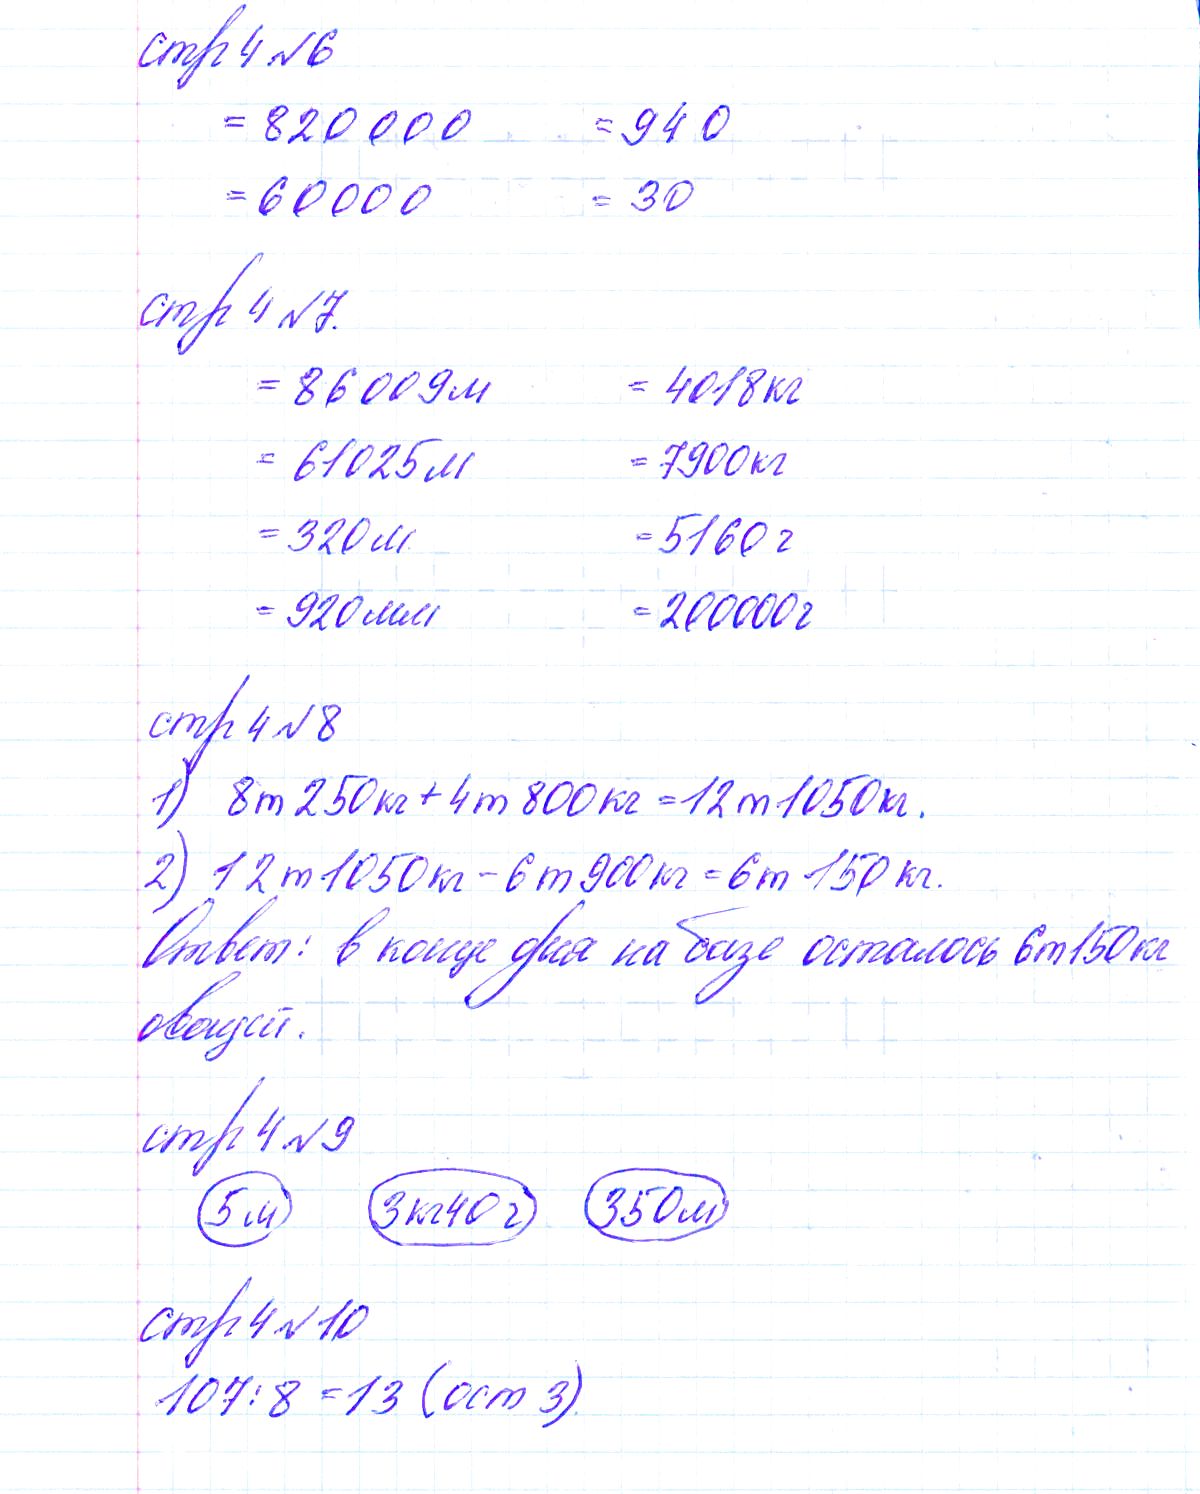 стр 4 №6
= 820000 = 940
= 60000 = 30
стр 4 №7.
= 86009м = 4018кг
= 61025м = 7900кг
= 320м = 5160г
= 920мм = 200000г
стр 4 №8
1) 8т 250кг + 4т 800кг = 12т 1050кг.
2) 12т 1050кг - 6т 900кг = 6т 150кг.
Ответ: в конце дня на базе осталось 6т 150кг
овощей.
стр 4 №9
5м 3кг40г 350м
стр 4 №10
107:8 = 13 (ост 3)